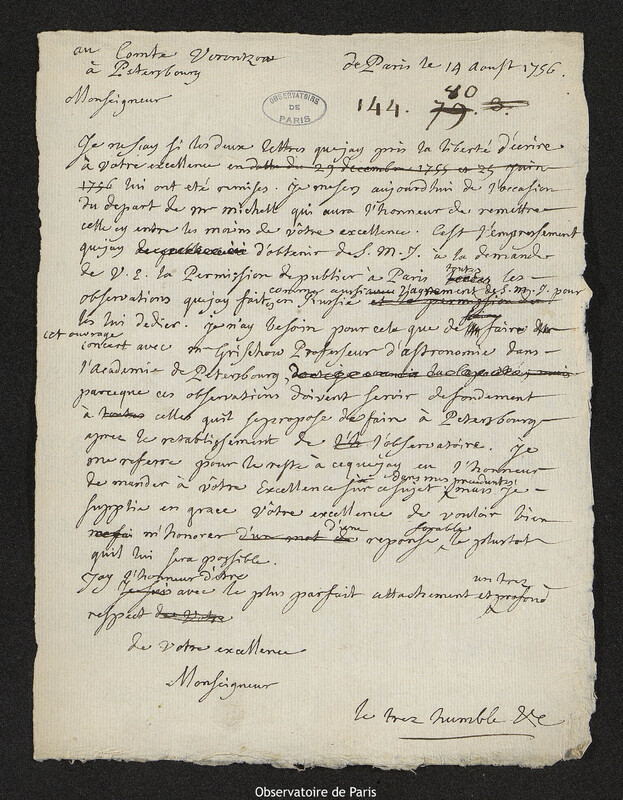 au Comte Vorontzow
à Petersbourg
de Paris le 14 Aoust 1756.
Monseigneur
OBSERVATOIRE DE PARIS
144. 80
79. 3.
Je ne sçay si les deux lettres que j'ay pris la liberté d'écrire
à Votre excellence en datte du 29 decembre 1755 et 25 Juin
1756 lui ont eté remises. Je me sers aujourdhui de l'occasion
du depart de mr michell qui aura l'honneur de remettre
celle cy entre les mains de vôtre excellence. C'est l'empressement
que j'ay d'obtenir de S. M. J. a la demande
de V. E. la Permission de publier à Paris toutes les
observations que j'ay faites en Russie comme aussi l'agrement de S. M. J. pour
et la permission de
les lui dedier. Je n'ay besoin pour cela que de faire
cet ouvrage
concert avec mr Grischow Professeur d'astronomie dans
l'Academie de Petersbourg,
parceque ces observations doivent servir de fondement
a toutes celles qu'il se propose de faire à Petersbourg
aprez le retablissement de l'observatoire. Je
me refere pour le reste à ce que j'ay eu l'honneur
de mander à vôtre Excellence sur ce sujet dans mes precedentes; mais Je
supplie en grace Vôtre excellence de vouloir bien
m'honorer d'un mot de d'une reponse favorable le plustot
qu'il lui sera possible.
J'ay l'honneur d'être
Je suis avec le plus parfait attachement et un trez profond
respect de Votre
de Votre excellence
Monseigneur
le trez humble &c
Observatoire de Paris